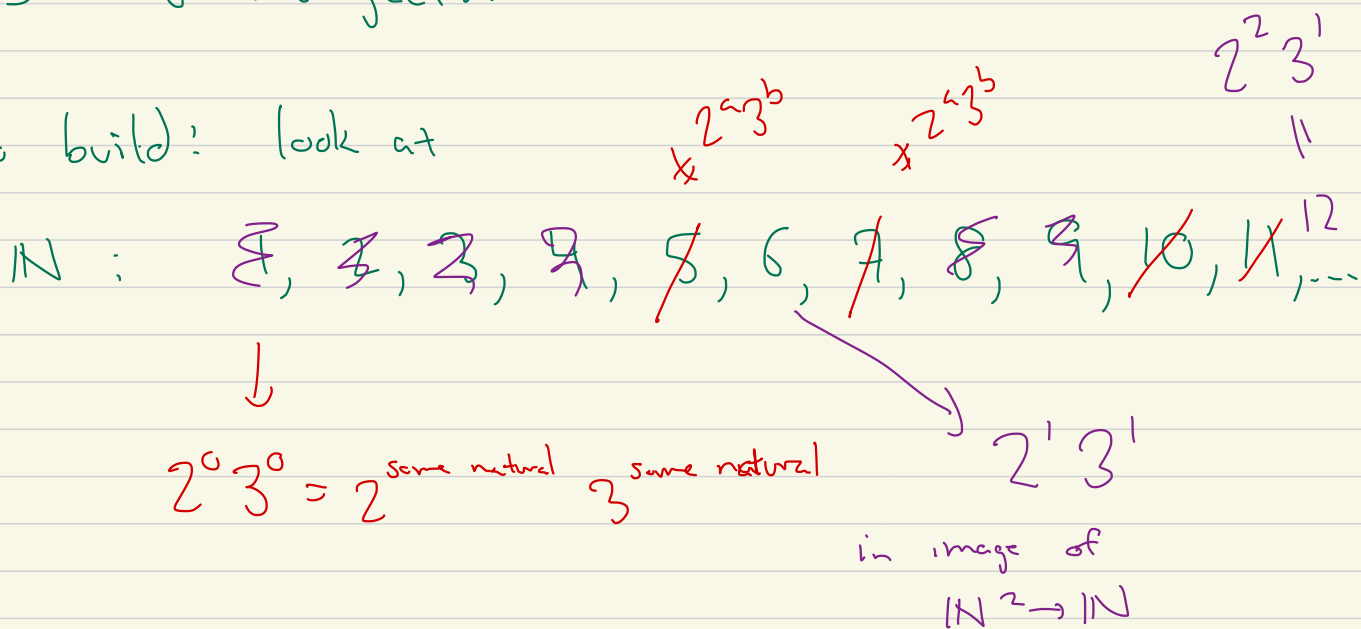 2² 3¹
build: look at
x 2ᵃ3ᵇ x 2ᵃ3ᵇ
||
ℕ : 1, 2, 3, 4, 5, 6, 7, 8, 9, 10, 11, ...
12
2⁰ 3⁰ = 2^some natural 3^some natural
2¹ 3¹
in image of
ℕ² → ℕ